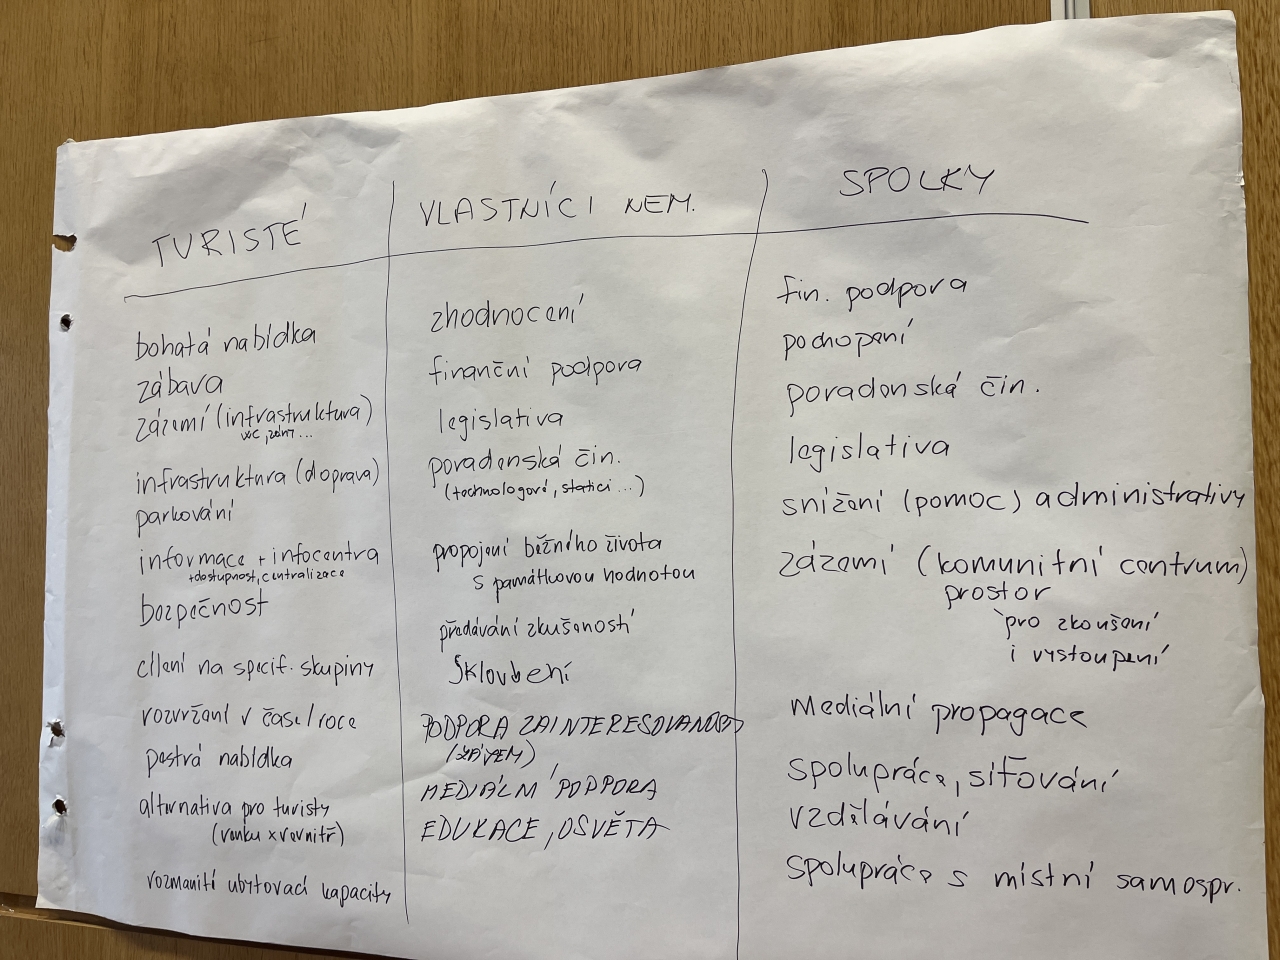 TURISTÉ
bohatá nabídka
zábava
zázemí (infrastruktura)
WC, zóny...
infrastruktura (doprava)
parkování
informace + infocentra
+dostupnost, centralizace
bezpečnost
cílení na specif. skupiny
rozvržení v čase/roce
pestrá nabídka
alternativa pro turisty
(venku x vevnitř)
rozmanití ubytovací kapacity
VLASTNÍCI NEM.
zhodnocení
finanční podpora
legislativa
poradenská čin.
(technologové, statici...)
propojení běžného života
s památkovou hodnotou
předávání zkušeností
skloubení
PODPORA ZAINTERESOVANOSTI
(ZÁJEM)
MEDIÁLNÍ PODPORA
EDUKACE, OSVĚTA
SPOLKY
fin. podpora
pochopení
poradenská čin.
legislativa
snížení (pomoc) administrativy
zázemí (komunitní centrum)
prostor
pro zkoušení
i vystoupení
mediální propagace
spolupráce, síťování
vzdělávání
spolupráce s místní samospr.